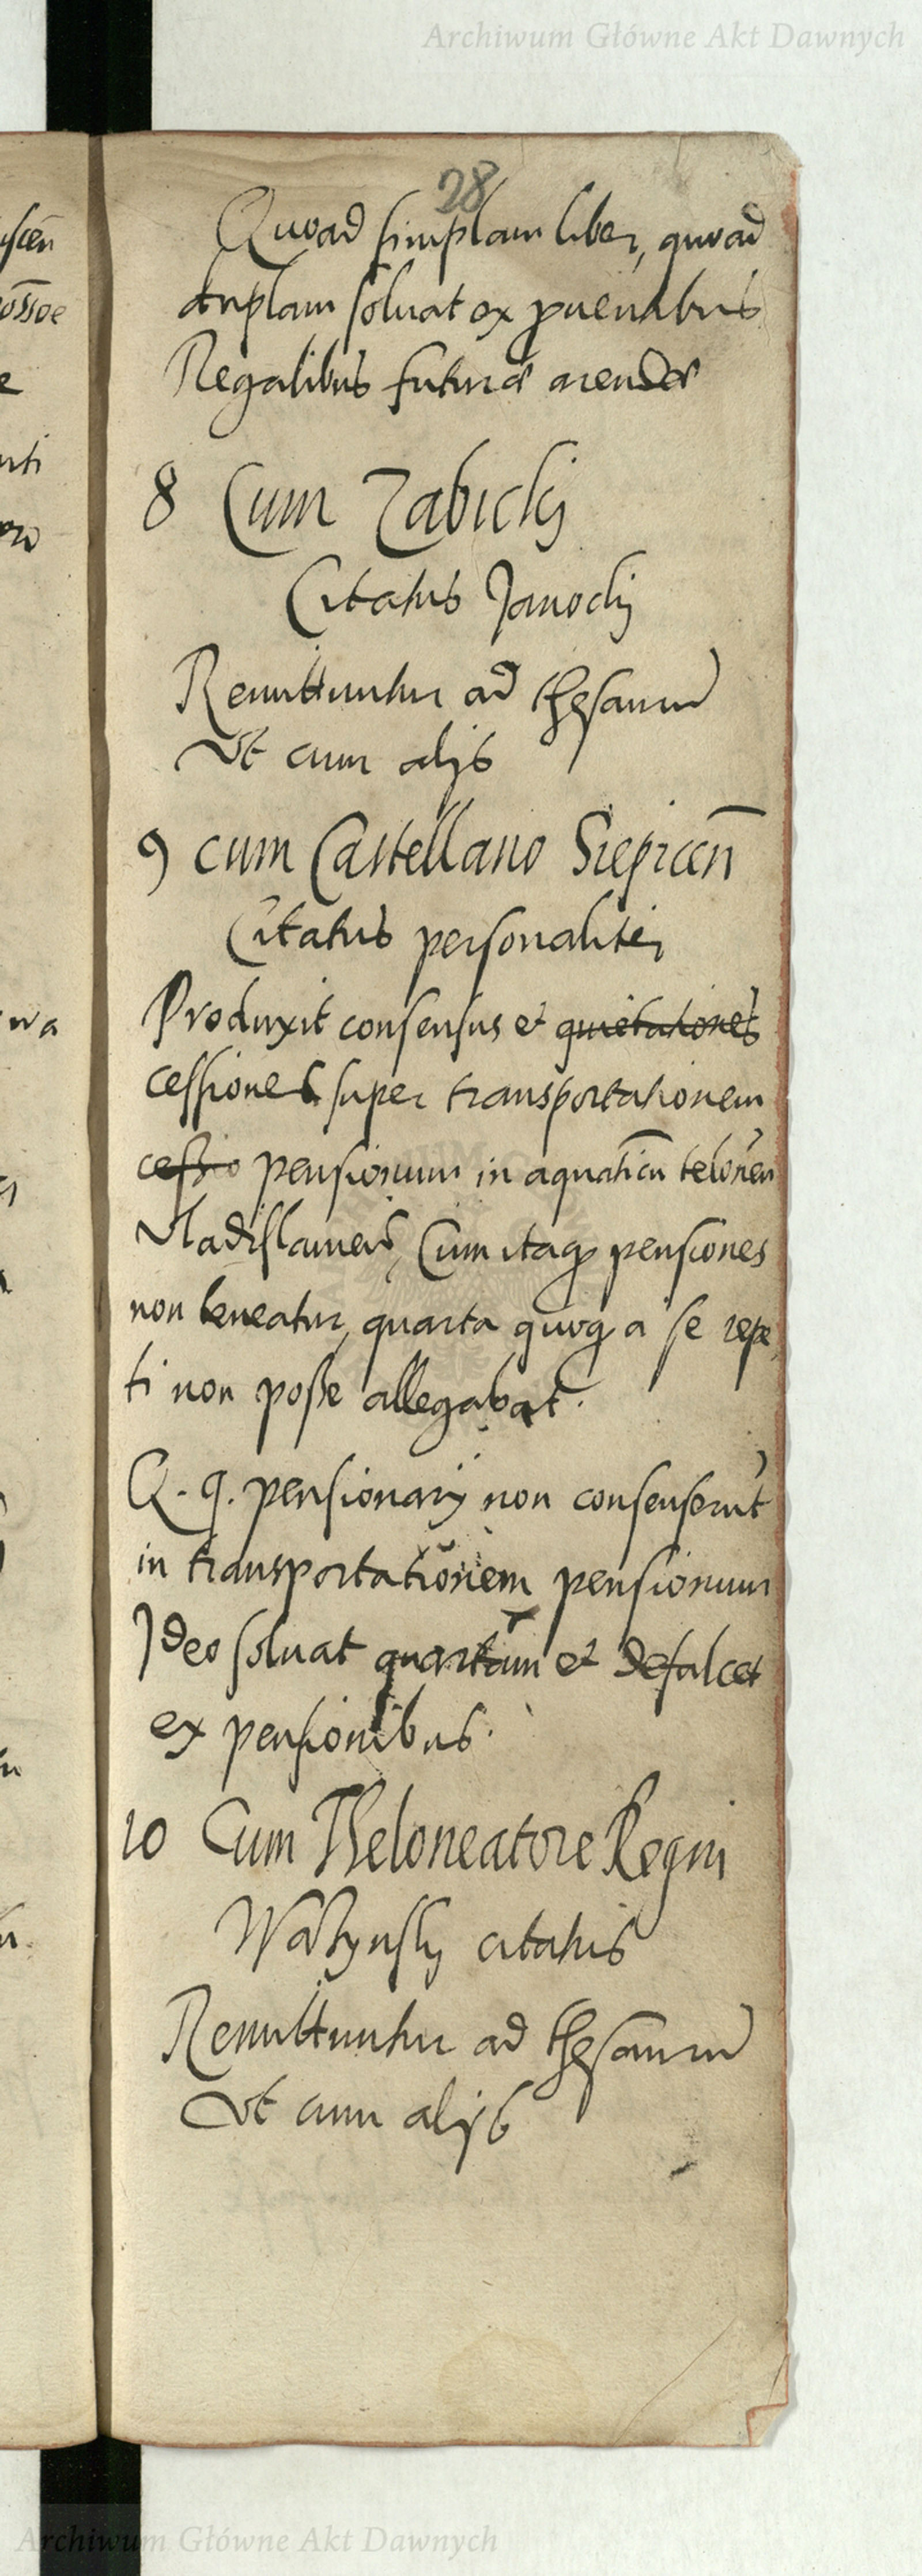 Archiwum Główne Akt Dawnych
28
Quoad simplam liber, quoad
duplam soluat ex prouentibus
Regalibus futuræ arendæ
8 Cum Zabickij
Citatus Janockij
Remittuntur ad thesaurum
Vt cum alijs
9 cum Castellano Sieprcen̄
Citatus personaliter
Produxit consensus et quietationes
cessiones super transportationem
cessio pensionum in aquaticū teloneū
Vladislauien̄, Cum itaq3 pensiones
non teneatur, quarta quoq3 a se repe
ti non posse allegabat.
Q. q. pensionarij non consenserūt
in transportationem pensionum
Ideo soluat quartam et defalcet
ex pensionibus.
10 Cum Theloneatore Regni
citatus
Remittuntur ad thesaurum
Vt cum alijs
Archiwum Główne Akt Dawnych